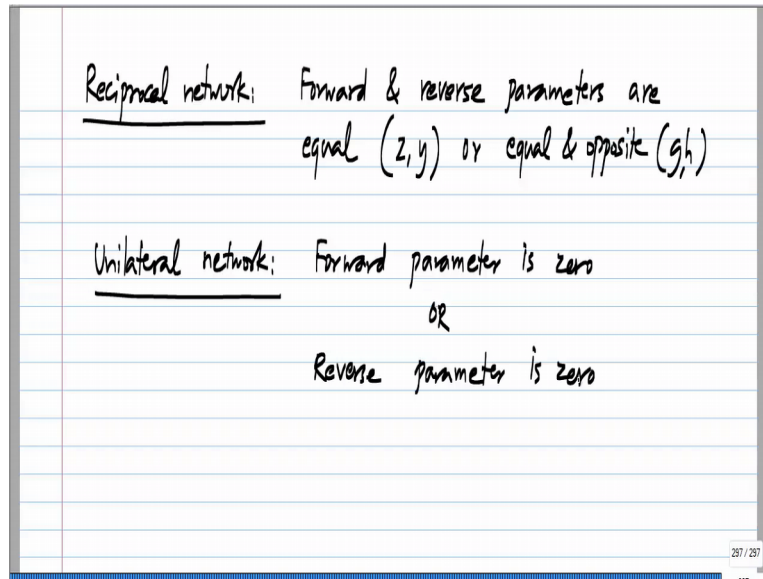 Reciprocal network: Forward & reverse parameters are
equal (z, y) or equal & opposite (g,h)
Unilateral network: Forward parameter is zero
OR
Reverse parameter is zero
297 / 297